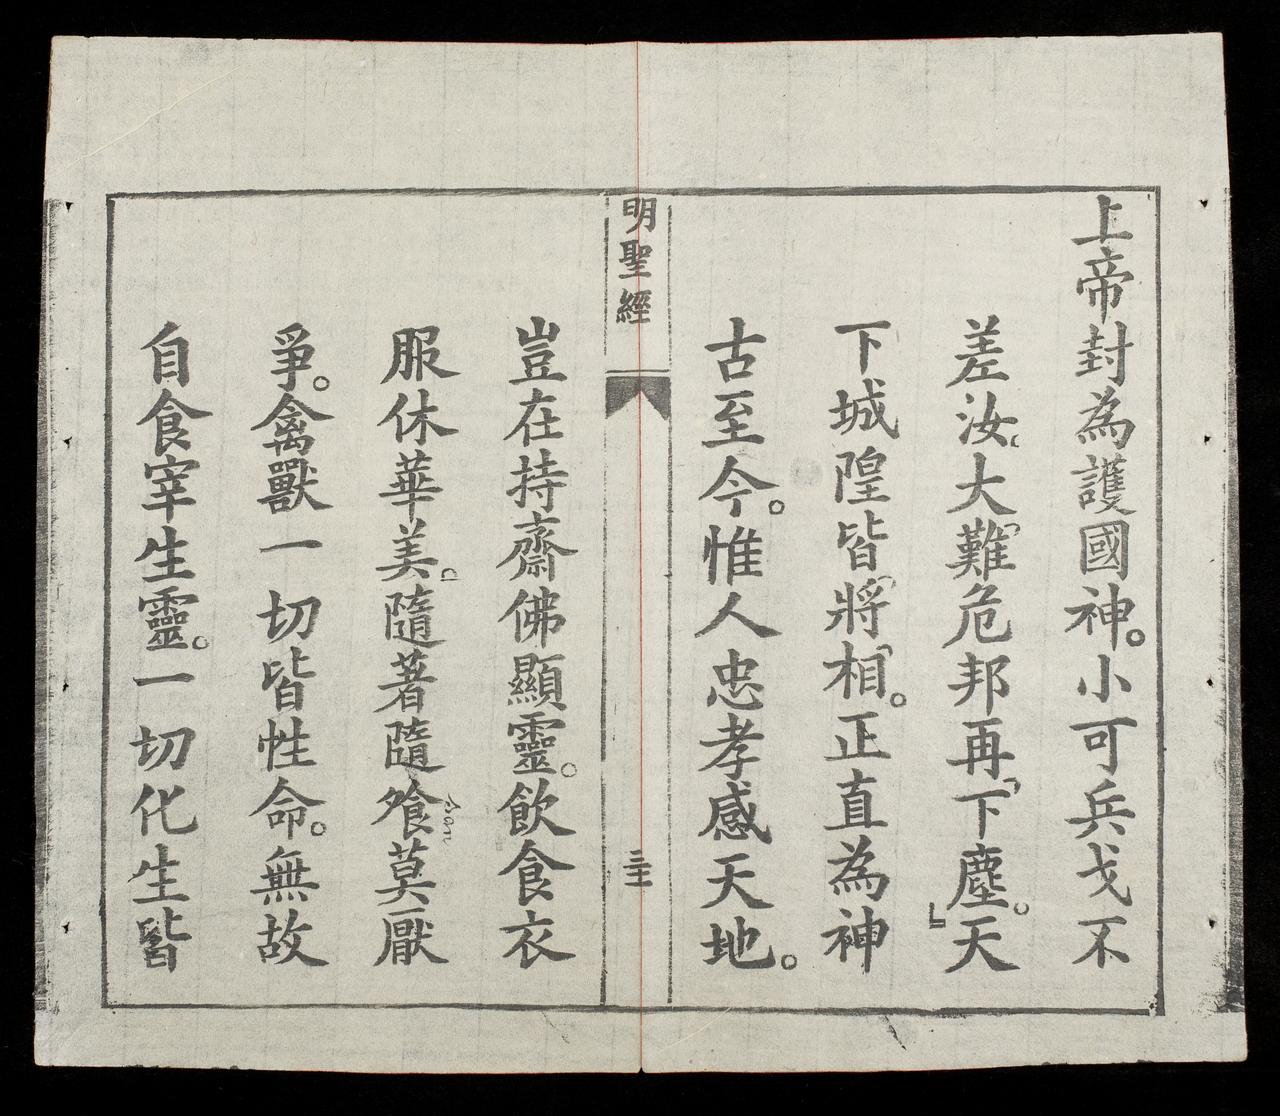 上帝封為護國神。小可兵戈不
差汝大難危邦再下塵。天
下城隍皆將相。正直為神
古至今。惟人忠孝感天地。
明聖經
三十二
豈在持齋佛顯靈。飲食衣
服休華美。隨著隨飧莫厭
爭。禽獸一切皆性命。無故
自食宰生靈。一切化生皆